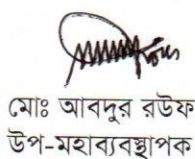 মোঃ আবদুর রউফ
উপ-মহাব্যবস্থাপক